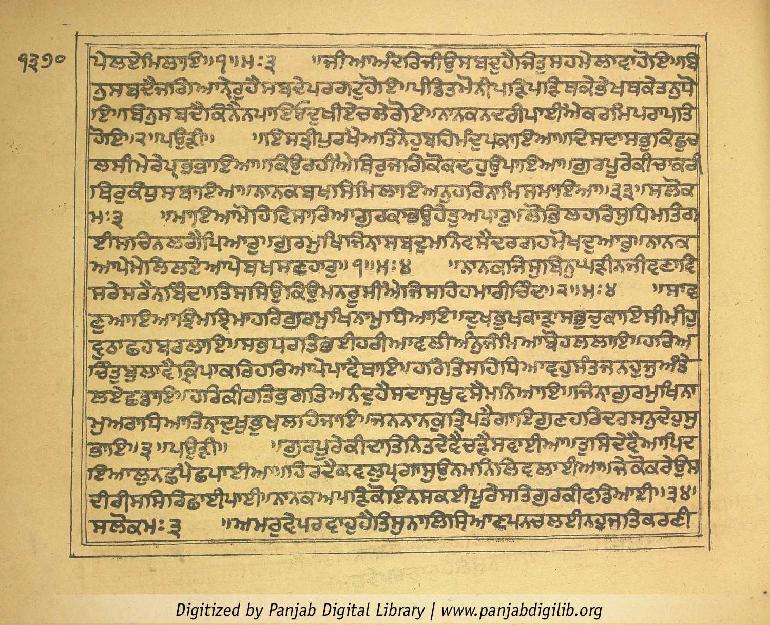 ੧੩੭੦
ਪੇਲਏਮਿਲਾਇ॥੧॥ਮਃ੩ ॥ਜੀਅਅੰਦਰਿਜੀਉਸਬਦੁਹੈਜਿਤੁਸਹਮੇਲਾਵਾਹੋਇ॥ਬਿ
ਨੁਸਬਦੈਜਗਿਆਨੇਰੁਹੈਸਬਦੇਪਰਗਟੁਹੋਇ॥ਪੰਡਿਤਮੋਨੀਪੜਿਪੜਿਥਕੇਭੇਖਥਕੇਤਨੁਧੋ
ਇ॥ਬਿਨੁਸਬਦੈਕਿਨੈਨਪਾਇਓਦੁਖੀਏਚਲੇਰੋਇ॥ਨਾਨਕਨਦਰੀਪਾਈਐਕਰਮਿਪਰਾਪਤਿ
ਹੋਇ॥੨॥ਪਉੜੀ॥ ॥ਇਸਤ੍ਰੀਪੁਰਖੈਅਤਿਨੇਹੁਬਹਿਮੰਦੁਪਕਾਇਆ॥ਦਿਸਦਾਸਭੁਕਿਛੁਚ
ਲਸੀਮੇਰੇਪ੍ਰਭਭਾਇਆ॥ਕਿਉਰਹੀਐਥਿਰੁਜਗਿਕੋਕਢਹੁਉਪਾਇਆ॥ਗੁਰਪੂਰੇਕੀਚਾਕਰੀ
ਥਿਰੁਕੰਧੁਸਬਾਇਆ॥ਨਾਨਕਬਖਸਿਮਿਲਾਇਅਨੁਹਰਿਨਾਮਿਸਮਾਇਆ॥੩੩॥ਸਲੋਕ
ਮਃ੩ ॥ਮਾਇਆਮੋਹਿਵਿਸਾਰਿਆਗੁਰਕਾਭਉਹੇਤੁਅਪਾਰੁ॥ਲੋਭਿਲਹਰਿਸੁਧਿਮਤਿਗ
ਈਸਚਿਨਲਗੈਪਿਆਰੁ॥ਗੁਰਮੁਖਿਜਿਨਾਸਬਦੁਮਨਿਵਸੈਦਰਗਹਮੋਖਦੁਆਰੁ॥ਨਾਨਕ
ਆਪੇਮੇਲਿਲਏਆਪੇਬਖਸਣਹਾਰੁ॥੧॥ਮਃ੪ ॥ਨਾਨਕਜਿਸੁਬਿਨੁਘੜੀਨਜੀਵਣਾਵਿ
ਸਰੇਸਰੈਨਬਿੰਦ॥ਤਿਸੁਸਿਉਕਿਉਮਨਰੂਸੀਐਜਿਸਹਿਹਮਾਰੀਚਿੰਦ॥੨॥ਮਃ੪ ॥ਸਾਵ
ਣੁਆਇਆਝਿਮਝਿਮਾਹਰਿਗੁਰਮੁਖਿਨਾਮੁਧਿਆਇ॥ਦੁਖਭੁਖਕਾੜਾਸਭੁਚੁਕਾਇਸੀਮੀਹੁ
ਵੁਠਾਛਹਬਰਲਾਇ॥ਸਭਧਰਤਿਭਈਹਰੀਆਵਲੀਅੰਨੁਜੰਮਿਆਬੋਹਲਲਾਇ॥ਹਰਿਅ
ਚਿੰਤੁਬੁਲਾਵੈਕ੍ਰਿਪਾਕਰਿਹਰਿਆਪੇਪਾਵੈਥਾਇ॥ਹਰਿਤਿਸਹਿਧਿਆਵਹੁਸੰਤਜਨਹੁਜੁਅੰਤੇ
ਲਏਛਡਾਇ॥ਹਰਿਕੀਰਤਿਭਗਤਿਅਨੰਦੁਹੈਸਦਾਸੁਖੁਵਸੈਮਨਿਆਇ॥ਜਿਨਾਗੁਰਮੁਖਿਨਾ
ਮੁਅਰਾਧਿਆਤਿਨਾਦੁਖਭੁਖਲਹਿਜਾਇ॥ਜਨਨਾਨਕੁਤ੍ਰਿਪਤੈਗਾਇਗੁਣਹਰਿਦਰਸਨੁਦੇਹੁਸੁ
ਭਾਇ॥੩॥ਪਉੜੀ॥ ॥ਗੁਰਪੂਰੇਕੀਦਾਤਿਨਿਤਦੇਵੈਚੜੈਸਵਾਈਆ॥ਤੁਸਿਦੇਵੈਆਪਿਦ
ਇਆਲੁਨਛਪੈਛਪਾਈਆ॥ਹਿਰਦੈਕਵਲੁਪ੍ਰਗਾਸੁਉਨਮਨਿਲਿਵਲਾਈਆ॥ਜੇਕੋਕਰੇਉਸ
ਦੀਰੀਸਸਿਰਿਛਾਈਪਾਈ॥ਨਾਨਕਅਪੜਿਕੋਇਨਸਕਈਪੂਰੇਸਤਿਗੁਰਕੀਵਡਿਆਈ॥੩੪
ਸਲੋਕਮਃ੩ ॥ਅਮਰੁਵੇਪਰਵਾਹੁਹੈਤਿਸੁਨਾਲਿਸਿਆਣਪਨਚਲਈਨਹੁਜਤਿਕਰਣੀ
Digitized by Panjab Digital Library | www.panjabdigilib.org